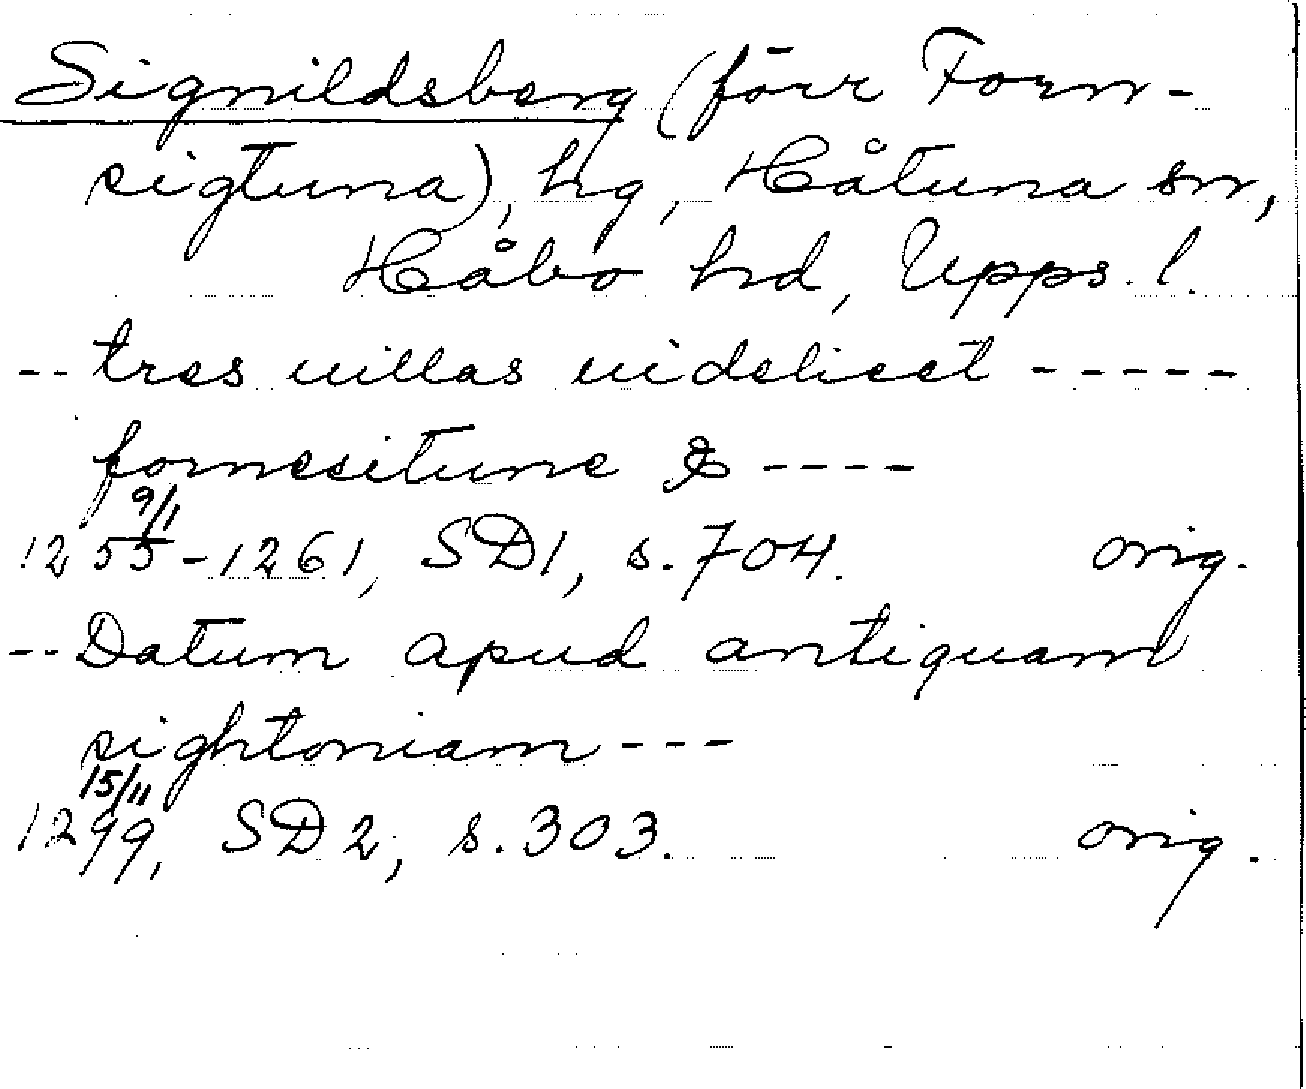 Signildsberg (förr Forn-
sigtuna), hg, Håtuna sn,
Håbo hd, Upps. l.
-- tres uillas uidelicet -----
fornesitune & ----
9/1
1255-1261, SD1, s. 704. orig.
-- Datum apud antiquam
sightoniam ---
15/11
1299, SD2, s. 303. orig.